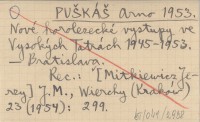 PUŠKÁŠ Arno 1953.
Nové horolezecké výstupy ve
Vysokých Tatrách 1945-1953.
— Bratislava.
Rec.: [Mitkiewicz Je-
rzy] J.M., Wierchy (Kraków)
23 (1954): 299.